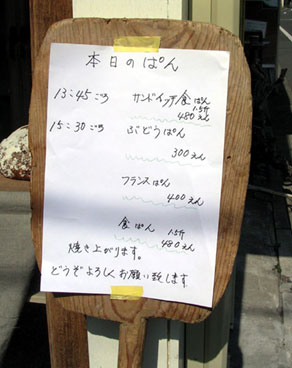 本日のぱん
13:45ごろ サンドイッチ/食ぱん
1.5斤
480えん
15:30ごろ ぶどうぱん
300えん
フランスぱん
400えん
食ぱん 1.5斤
480えん
焼き上がります。
どうぞよろしくお願い致します